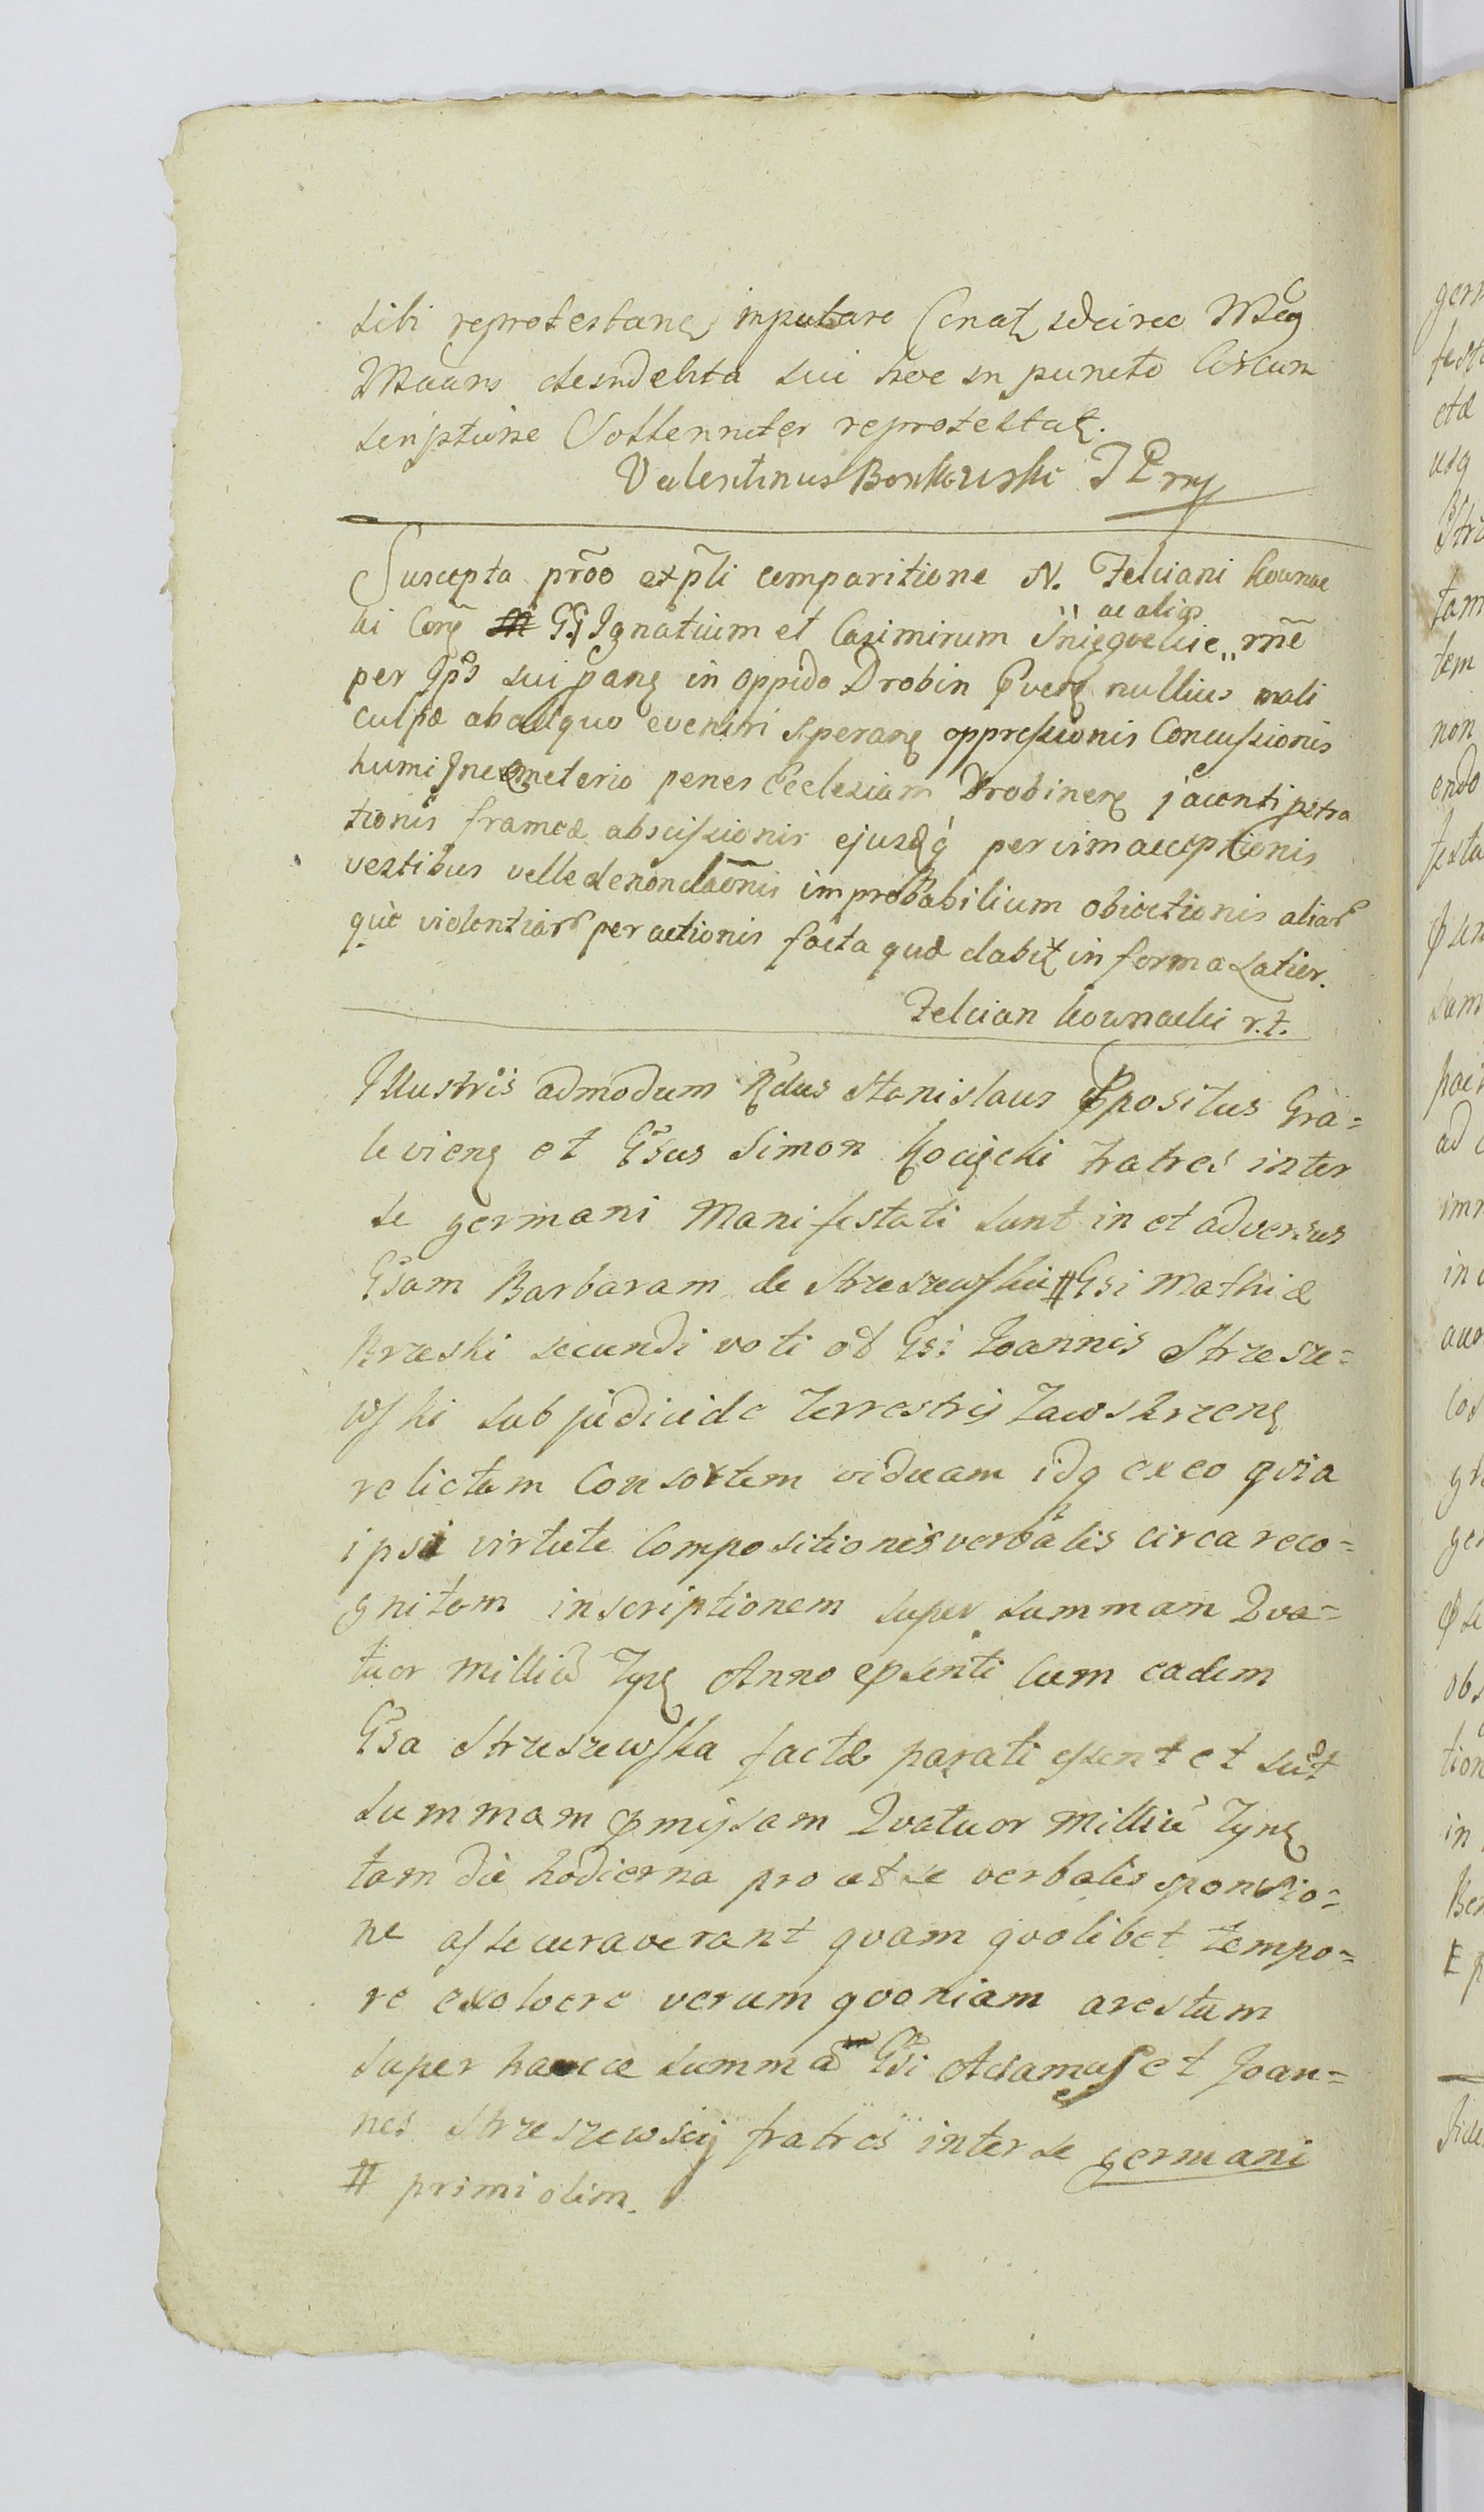 sibi reprotestanę inputare Conat idcirco
de indebita sui hoc in puncto Circum
scriptione Sollenniter reprotestat.
Valentinus Bonkowski
Suscepta comparitione N. Feliciani Kownac
ki Corą GG Ignatium et Casimirum Sniegockie
ac alios
per sui in oppido Drobin nullius mali
culpæ ab aliquo eveniri speranę oppressionis Concussionis
humi In Cmeterio penes Ecclesiam Drobinenę jacenti patra
tionis frameæ abscissionis ejusdęq per vim acceptionis
vestibus velle improbabilium obiectionis aliar
què violentiar peractionis facta quæ dabit in forma Latior.
Felician Kownacki
Illustris admodum Rdus Stanislaus Ppositus Gra=
levienę et Gsus Simon Kocięcki Fratres inter
se germani Manifestati sunt in et adversus
Gsam Barbaram de Strzeszewskie # Gsi Mathiæ
Brzeski secundi voti ot Gsi Joannis Strzesze=
wski subjudicide Terrestris Zawskrzenę
relictam Consortem viduam idq ex eo qvia
ipsi virtute Compositionis verbalis circa reco=
gnitam inscriptionem super summam Qva=
tuor milliū Tynę Anno psenti cum eadem
Gsa Strzeszewska factæ parati essent et sūt
summam pmissam Qvatuor milliū Tynę
tam die hodierna pro ut se verbalis sponsio=
ne assecuraverant qvam qvolibet tempo=
re exolvere verum qvoniam arestum
super hancce summā Gsi Adamus et Joan=
nes Strzeszewscij fratres inter se germani
# primi olim